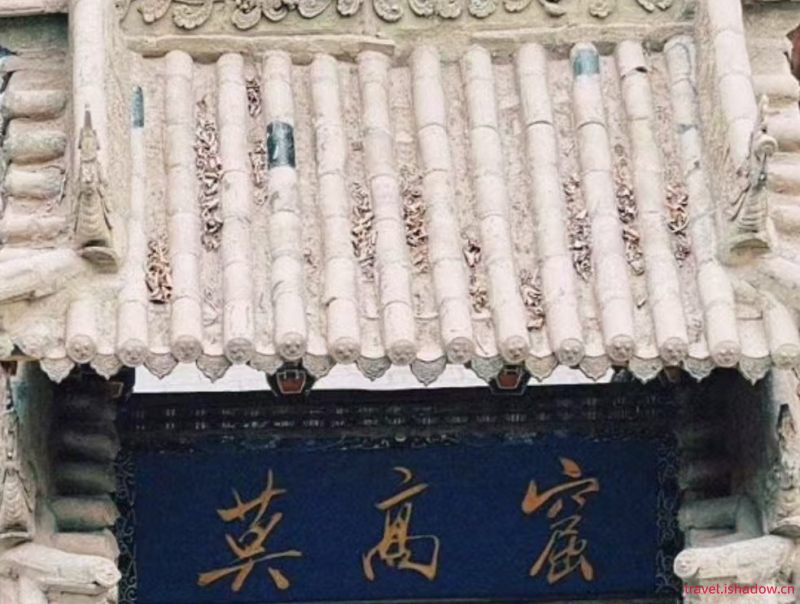 莫高窟
travel.ishadow.cn